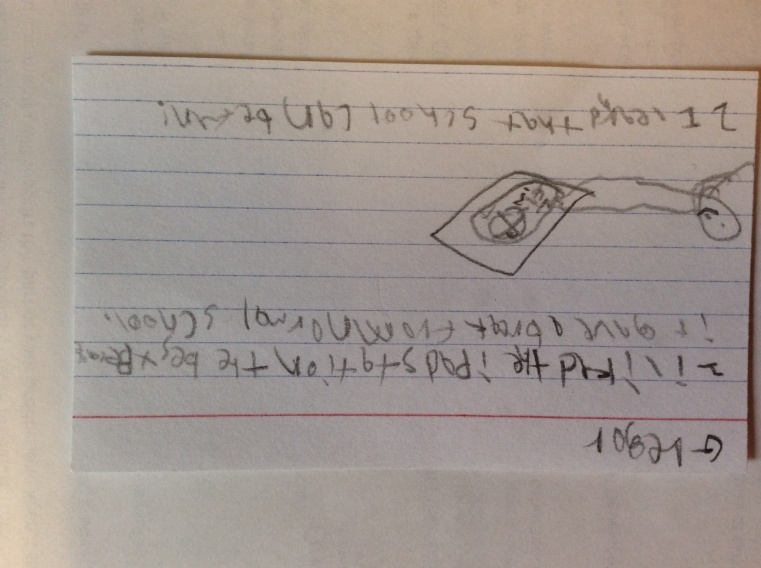 Gregor
1 i liked the ipad station the best
it gave a break from normal school.
2 I leand that school can be fun!